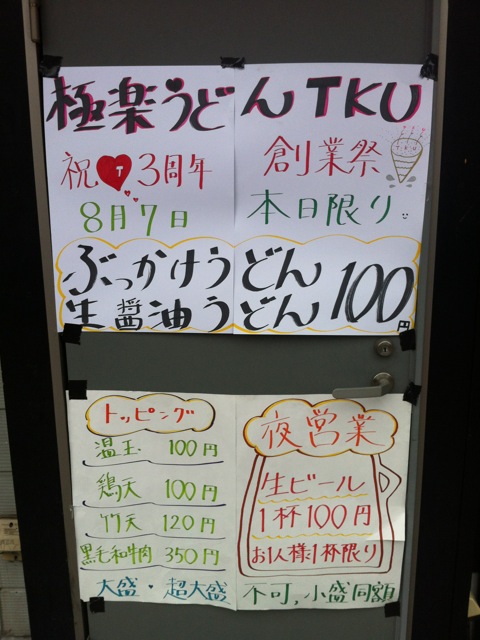 極楽うどんTKU
祝 T 3周年 創業祭
8月7日 本日限り
ぶっかけうどん 100円
生醤油うどん
トッピング
温玉 100円
鶏天 100円
竹天 120円
黒毛和牛肉 350円
夜営業
生ビール
1杯100円
お1人様1杯限り
大盛・超大盛 不可,小盛同額